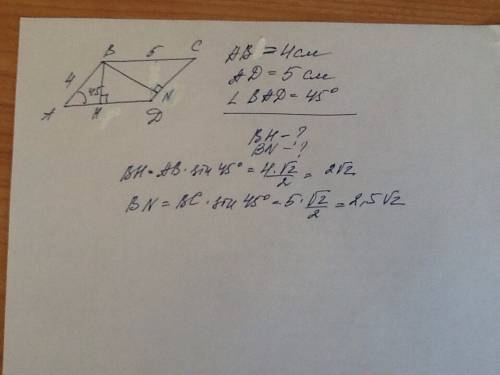 B 5 C
4
A 45 H D N
AB = 4 см
AD = 5 см
∠ BAD = 45°
BH - ?
BN - ?
BH = AB · sin 45° = 4·√2/2 = 2√2
BN = BC · sin 45° = 5·√2/2 = 2,5√2